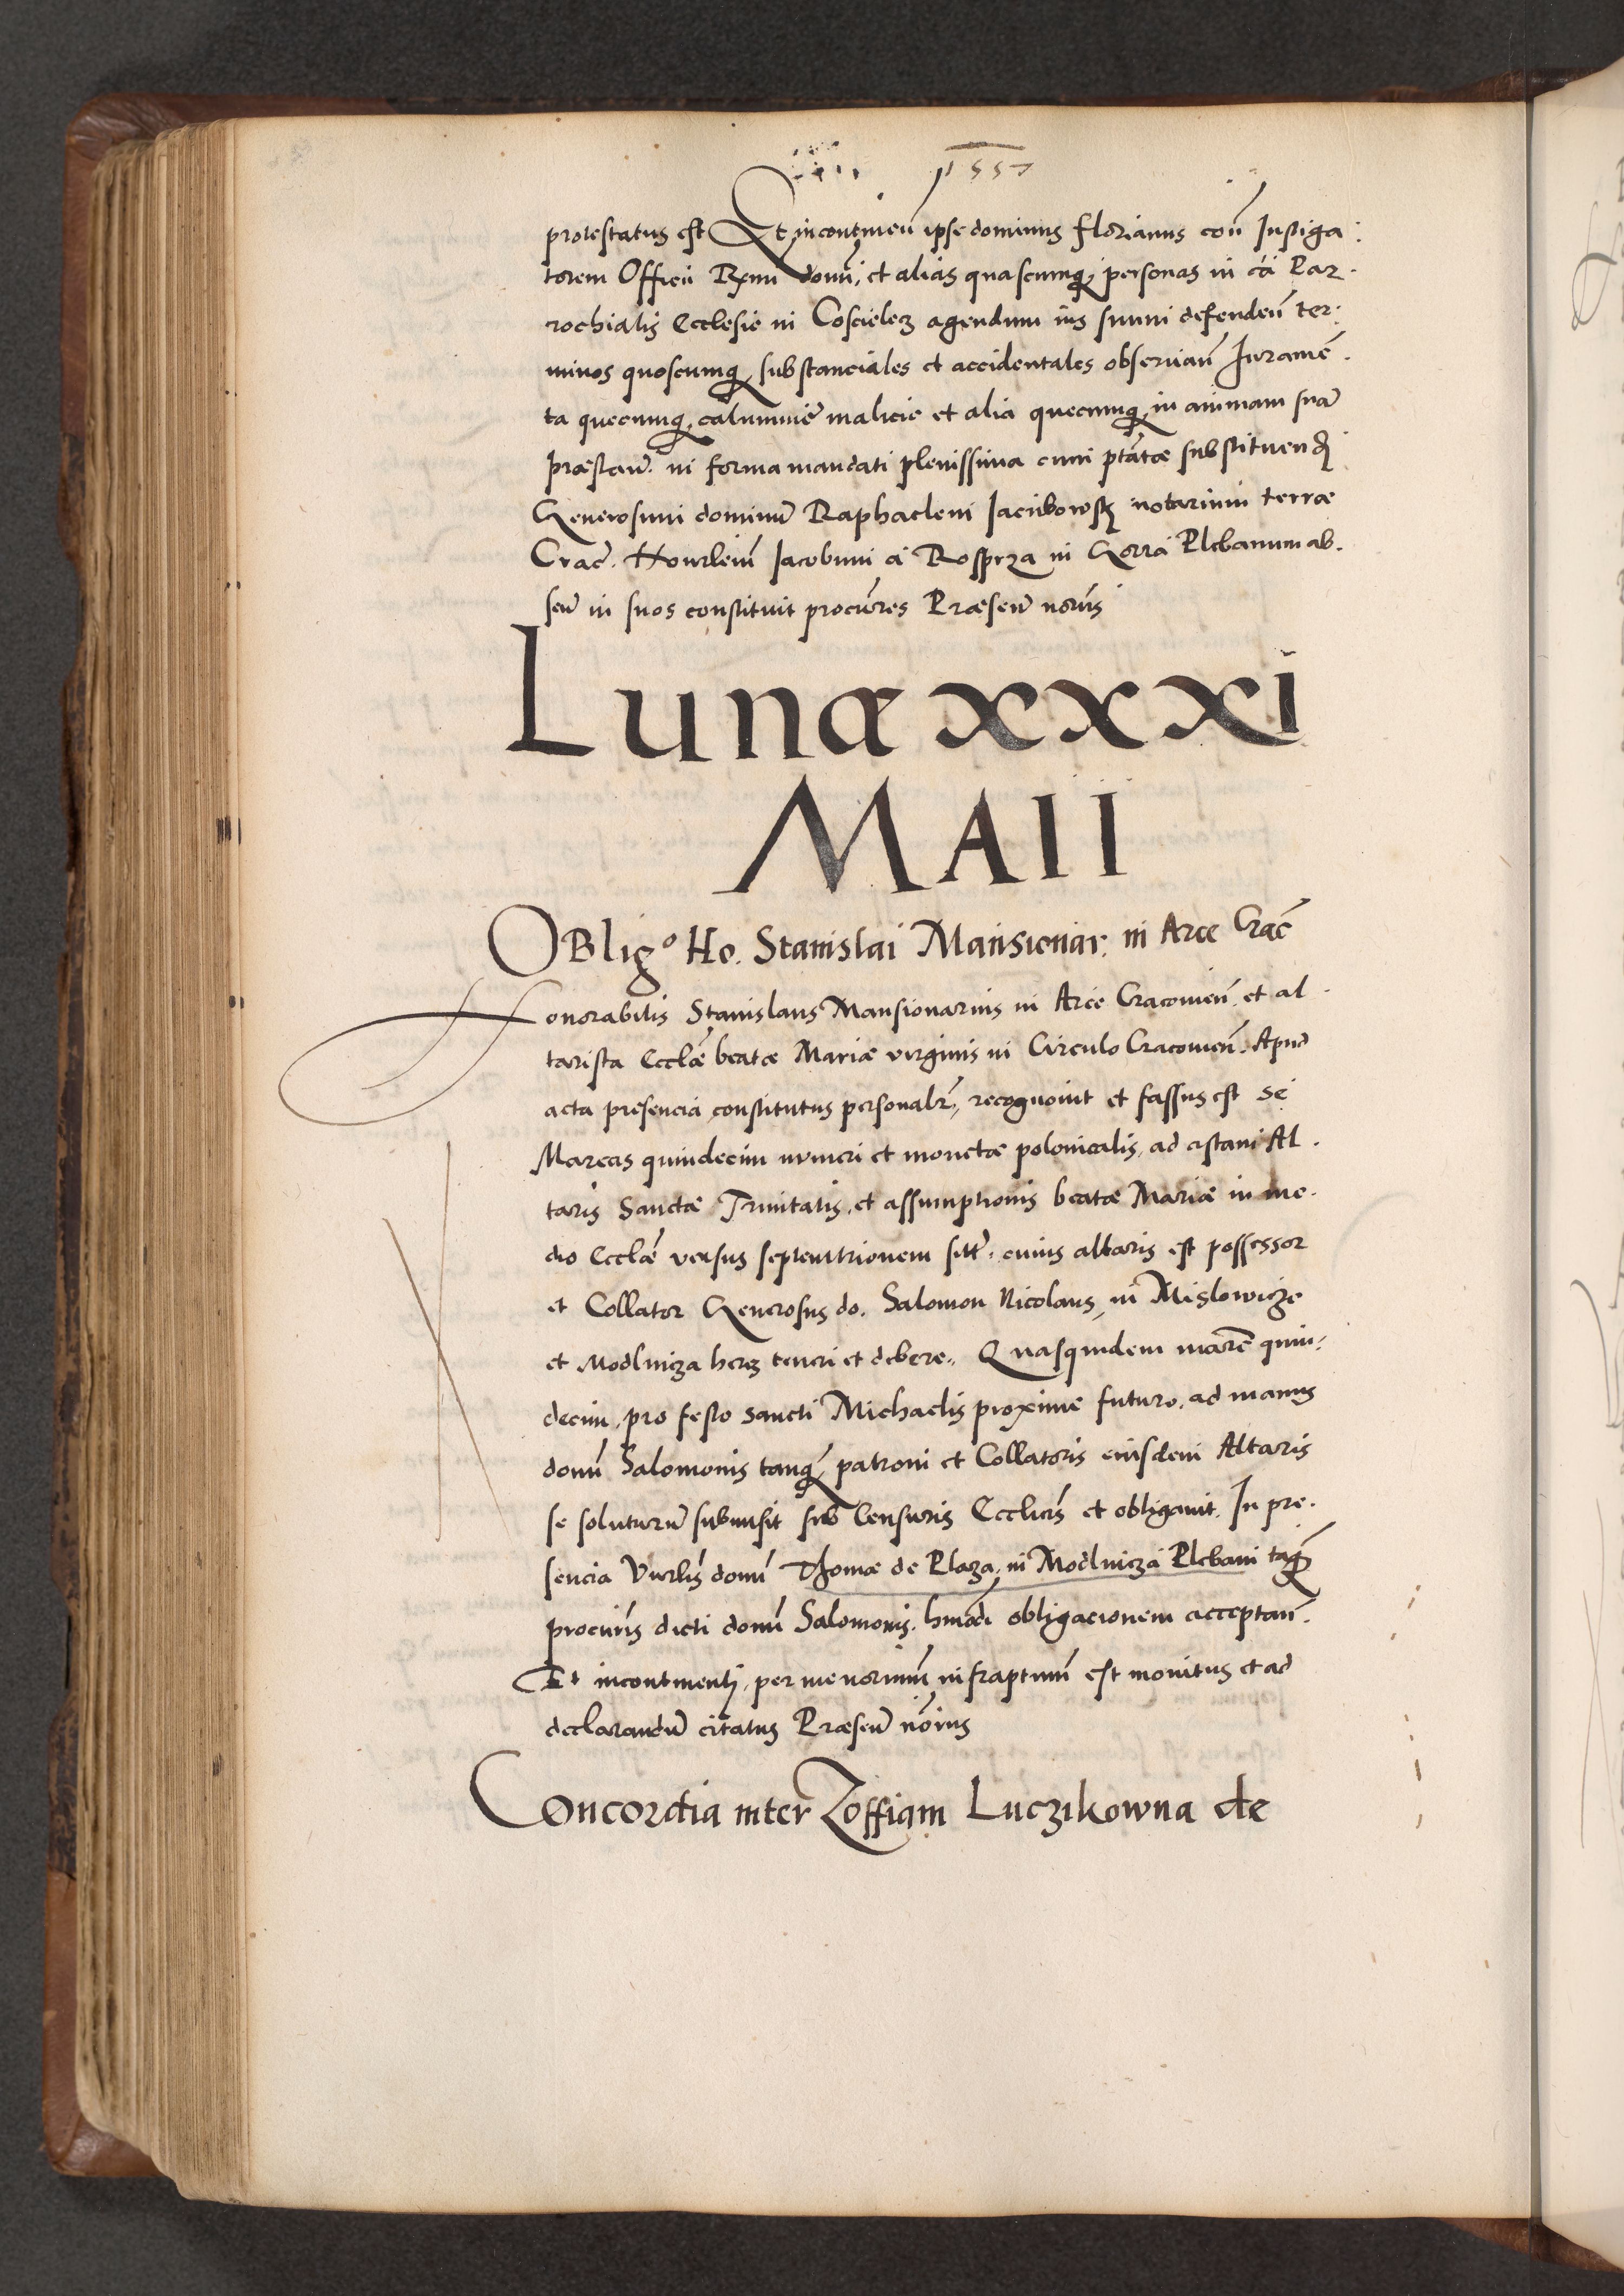 1557
protestatus est Et incontineñ ipse dominus Florianus coñ Instiga:
torem Officii Rmi domi, et alias quascumq personas in cã Par.
rochialis Ecclesie in Coscielecz agendum ius suum defendeñ ter:
minos quoscumq substanciales et accidentales observañ Iuramē.
ta quecumq calumnie malicie et alia quecumq in animam suā
præstañ. in forma mandati plenissima cum ptãtæ substituendi
Generosum dominū Raphaelem notarium terræ
Crac̃. Hourlem̃ Iacobum a Rosprza in Gorra Plebanum ab.
señ in suos constituit procũres Præseñ norijs
Lunæ xxxi
MAII
Oblig° Ho. Stanislai Mansionar. in Arce Crac̃
Honorabilis Stanislaus Mansionarius in Arce Cracovieñ. et al.
tarista Ecclæ̃ beatæ Mariæ virginis in Circulo Cracovieñ. Apud
acta presencia constitutus personalr̃, recognovit et fassus est se
Marcas quindecim numeri et monetæ polonicalis, ad cistam Al.
taris Sanctæ Trinitatis, et assumptionis beatæ Mariæ in me.
dio Ecclæ̃ versus septemtrionem sitt̃. cuius altaris est possessor
et Collator Generosus do. Salomon Nicolaus, in Mislowicze
et Modlnicza herez teneri et debere,, Quasquidem marc̃ quin-
decim, pro festo sancti Michaelis proxime futuro, ad manus
domĩ Salomonis tanq̃, patroni et Collatoris eiusdem Altaris
se soluturū submisit sub Censuris Ecclicis̃ et obligavit. In pre.
sencia Vnrlis̃ domĩ Thomæ de Plaza, in Modlnicza Plebani taq̃
procuris̃ dicti domĩ Salomonis. hmõdi obligacionem acceptañ.
Et incontinenti, per me norium̃ infraptum̃ est monitus et ad
declarandū citatus Præseñ nõrijus
Concordia inter Zoffiam Luczikowna de